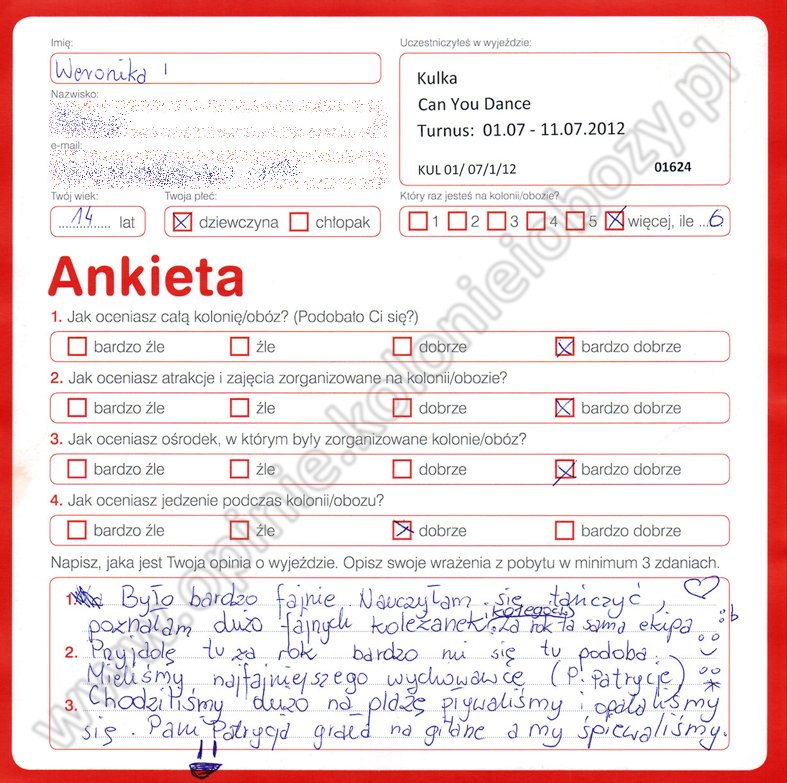 Imię:
Weronika
Uczestniczyłeś w wyjeździe:
Kulka
Can You Dance
Turnus: 01.07 - 11.07.2012
KUL 01/ 07/1/12 01624
Nazwisko:
e-mail:
Twój wiek:
14 lat
Twoja płeć:
dziewczyna chłopak
Który raz jesteś na kolonii/obozie?
1 2 3 4 5 więcej, ile ...6
Ankieta
1. Jak oceniasz całą kolonię/obóz? (Podobało Ci się?)
bardzo źle źle dobrze bardzo dobrze
2. Jak oceniasz atrakcje i zajęcia zorganizowane na kolonii/obozie?
bardzo źle źle dobrze bardzo dobrze
3. Jak oceniasz ośrodek, w którym były zorganizowane kolonie/obóz?
bardzo źle źle dobrze bardzo dobrze
4. Jak oceniasz jedzenie podczas kolonii/obozu?
bardzo źle źle dobrze bardzo dobrze
Napisz, jaka jest Twoja opinia o wyjeździe. Opisz swoje wrażenia z pobytu w minimum 3 zdaniach.
1. Było bardzo fajnie. Nauczyłam się tańczyć,
poznałam dużo fajnych koleżanek. kolegów Za rok ta sama ekipa :D
2. Przyjdę tu za rok bardzo mi się tu podoba.
Mieliśmy najfajniejszego wychowawcę (P. Patrycję)
3. Chodziliśmy dużo na plażę pływaliśmy i opalaliśmy
się. Pani Patrycja grała na gitarze a my śpiewaliśmy.
www.opinie.kolonieiobozy.pl